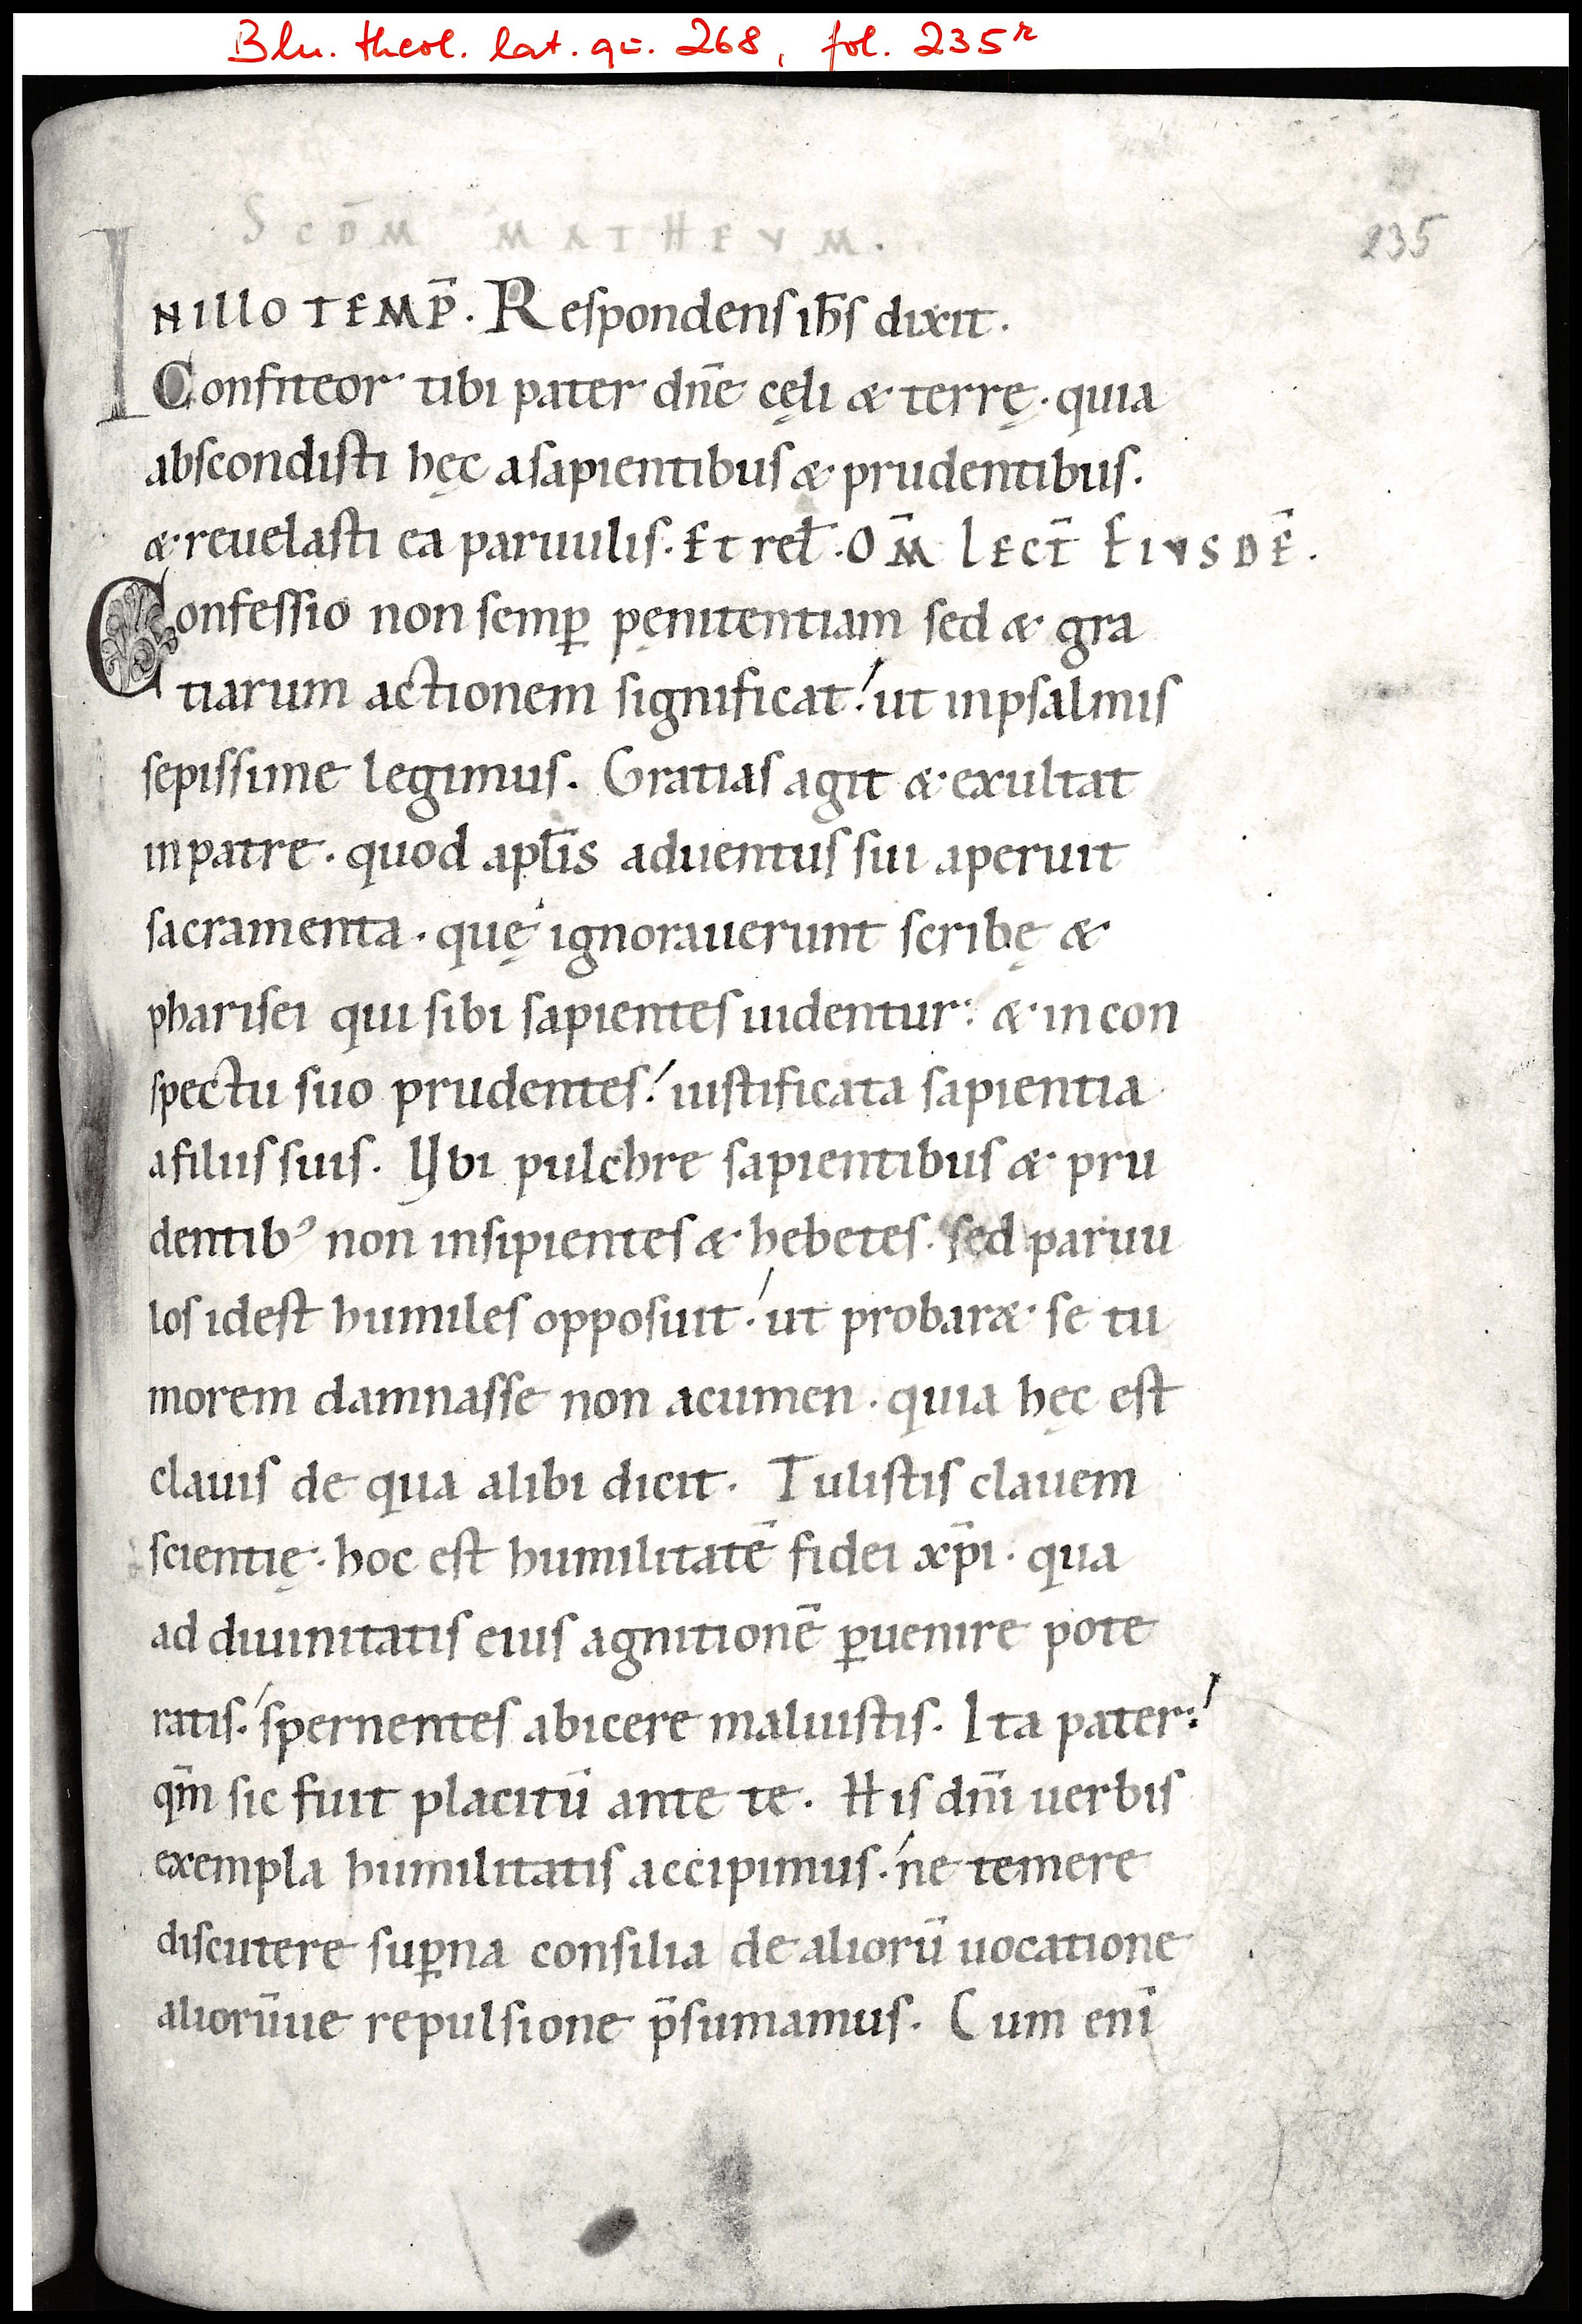 Bln. theol. lat. qu. 268, fol. 235r
SCD̄M MATHEVM.
235
IN ILLO TEMP̄. Respondens ih̄s dixit.
Confiteor tibi pater dn̄e cęli & terrę. quia
abscondisti hęc asapientibus & prudentibus.
& reuelasti ea paruulis. Et rel̄. OM̄ LECT̄ EIVSDĒ.
Confessio non semꝑ pęnitentiam sed & gra
tiarum actionem significat. ut inpsalmis
sepissime legimus. Gratias agit & exultat
inpatre. quod apl̄is aduentus sui aperuit
sacramenta. quę ignorauerunt scribę &
pharisei qui sibi sapientes uidentur. & incon
spectu suo prudentes. iustificata sapientia
afiliis suis. Ubi pulchre sapientibus & pru
dentibꝰ non insipientes & hebetes. sed paruu
los idest humiles opposuit. ut probar& se tu
morem damnasse non acumen. quia hęc est
clauis de qua alibi dicit. Tulistis clauem
scientię. hoc est humilitatē fidei xp̄i. qua
ad diuinitatis eius agnitionē ꝑuenire pote
ratis. spernentes abicere maluistis. Ita pater.
qm̄ sic fuit placitū ante te. His dn̄i uerbis
exempla humilitatis accipimus. ne temere
discutere suꝑna consilia de aliorū uocatione
aliorūue repulsione p̄sumamus. Cum enī